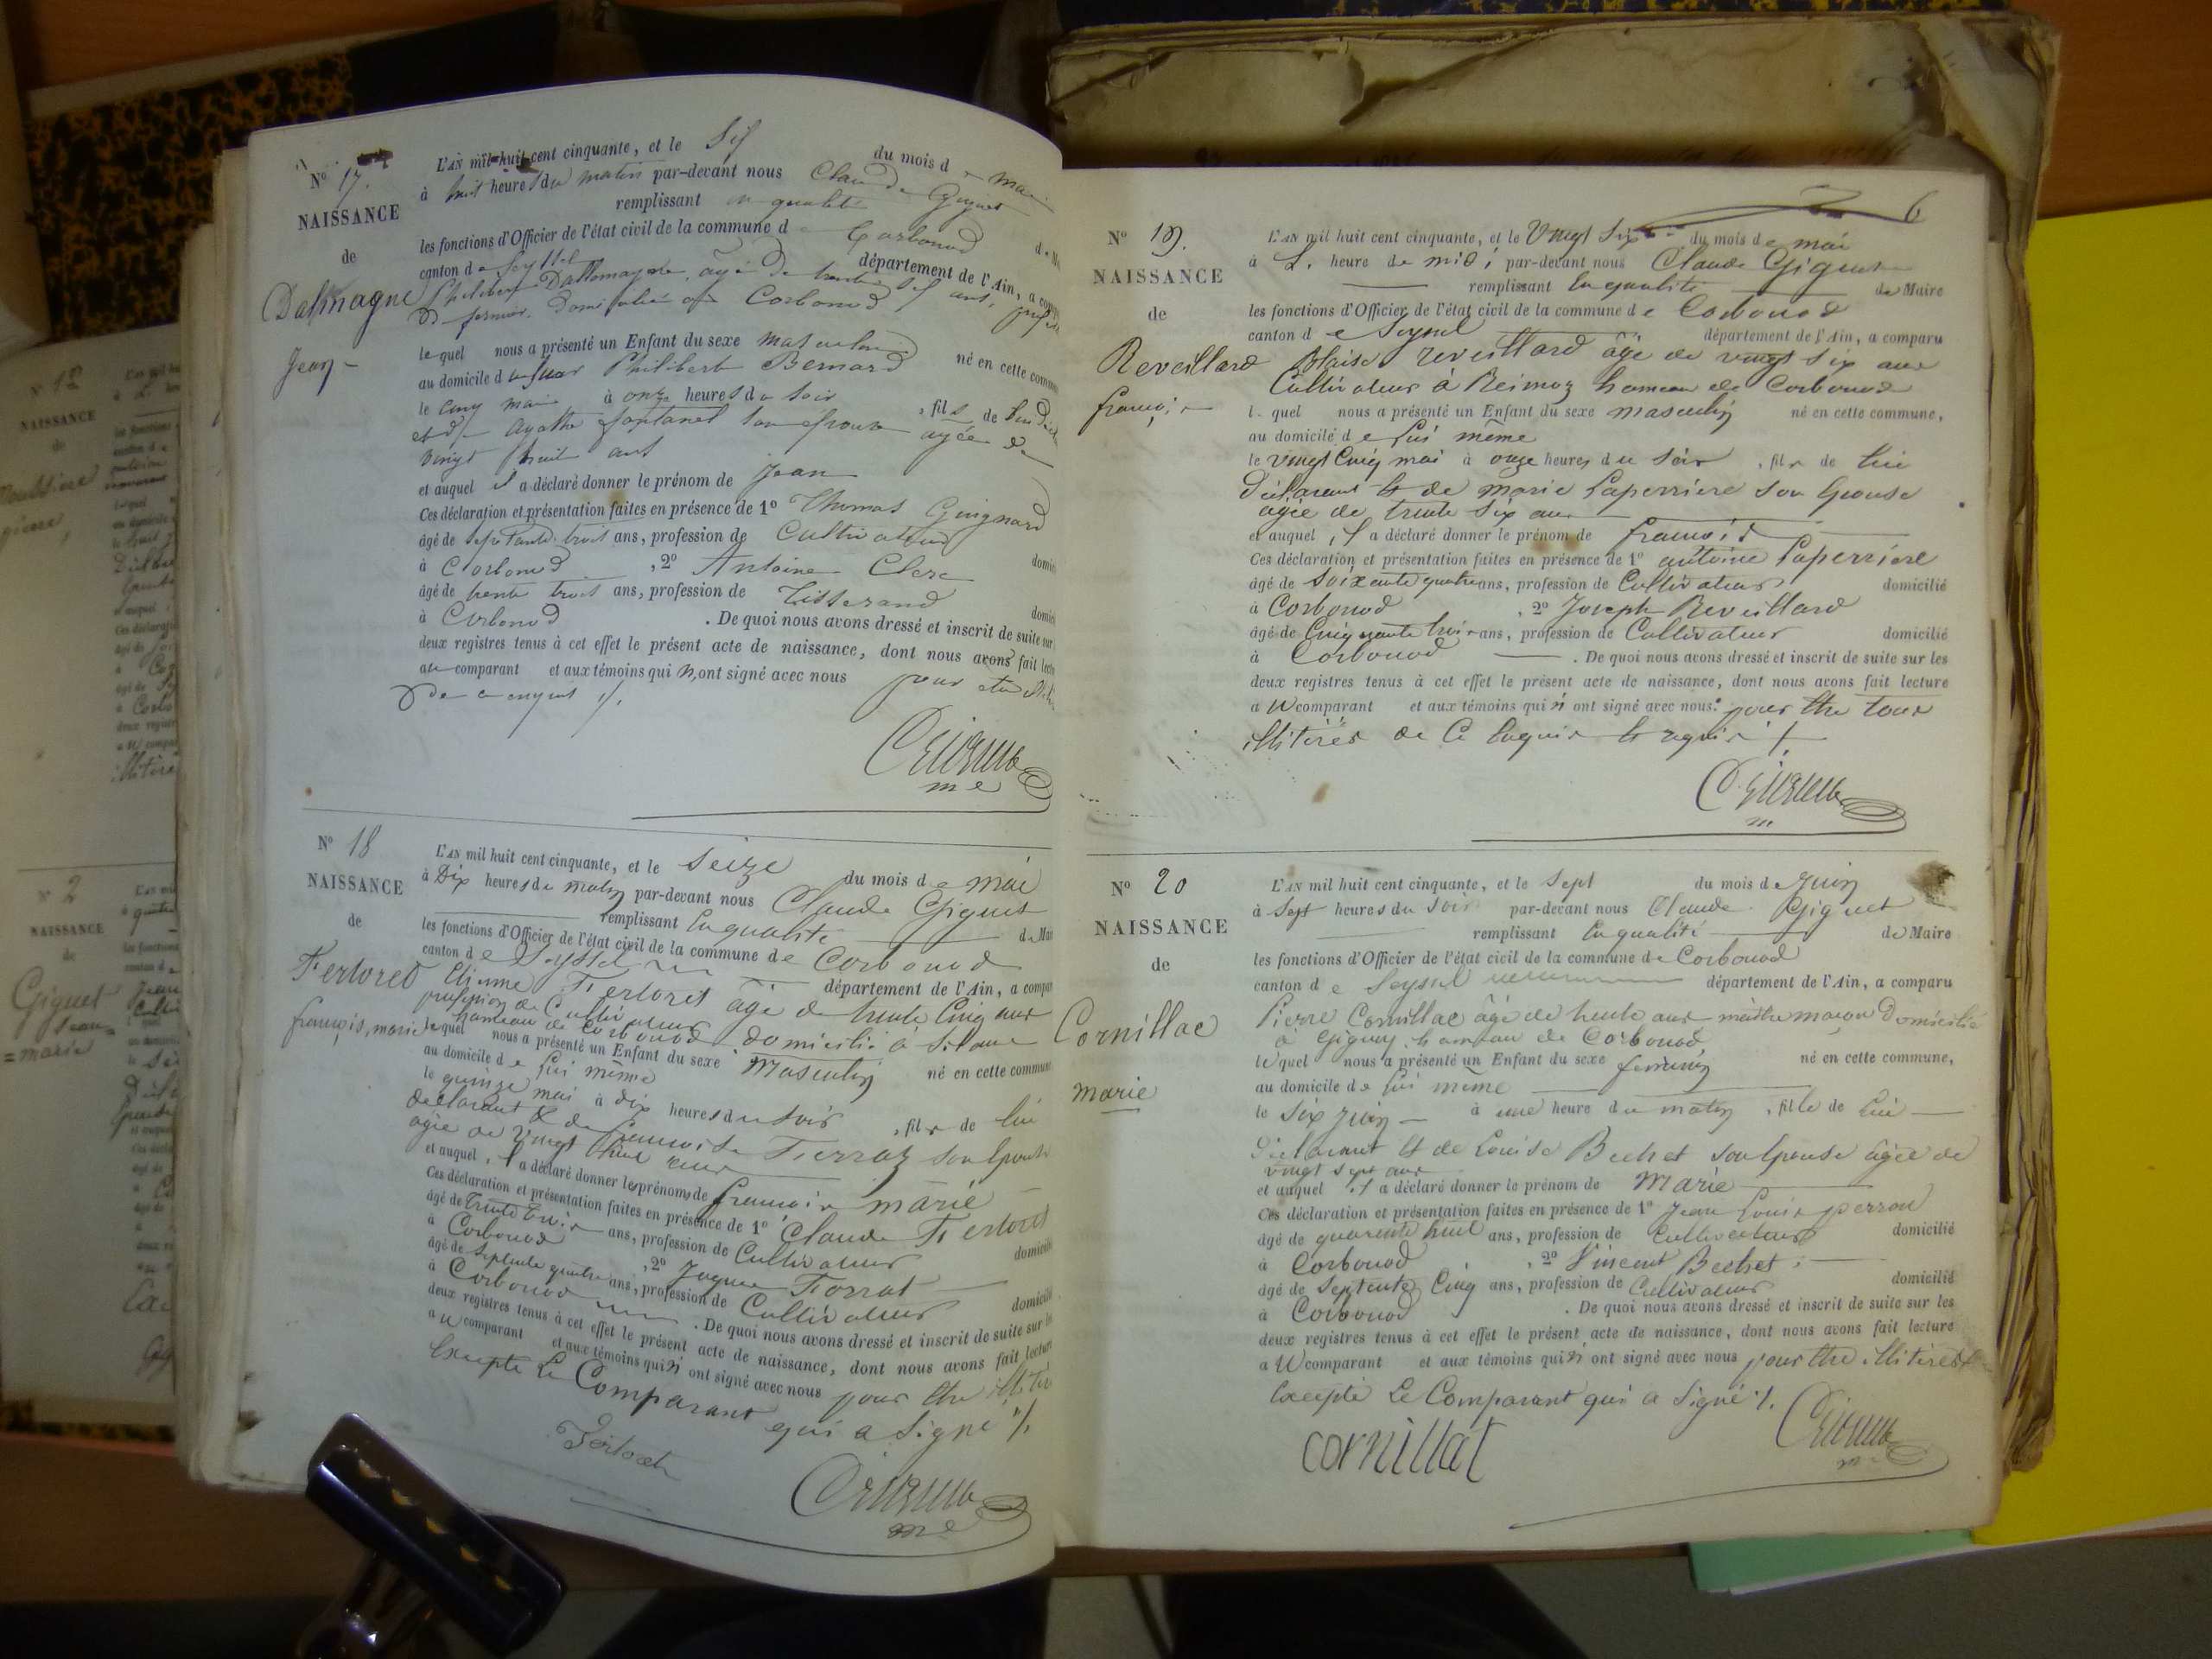 N° 17.
NAISSANCE
de
Dalmagne
Jean
L'AN mil huit cent cinquante, et le Six du mois d mai
à huit heures du matin par-devant nous Claude Giguet
remplissant en qualité
les fonctions d'Officier de l'état civil de la commune d Corbonod
canton de Seyssel département de l'Ain, a
Philibert Dallemagne, âgé de trente ans,
fermier domicilié à Corbonod
lequel nous a présenté un Enfant du sexe masculin né en cette
au domicile d Philibert Bernard
le cinq mai à onze heures du soir , fils de
et d Agathe fontanel son épouse agée de
vingt huit ans
et auquel il a déclaré donner le prénom de Jean
Ces déclaration et présentation faites en présence de 1° Thomas Guignard
âgé de septante trois ans, profession de Cultivateur
à Corbonod , 2° Antoine Clerc
âgé de trente trois ans, profession de Tisserand
à Corbonod . De quoi nous avons dressé et inscrit de suite sur
deux registres tenus à cet effet le présent acte de naissance, dont nous avons fait
au comparant et aux témoins qui n'ont signé avec nous pour
de ce enquis
N° 18
NAISSANCE
de
Fertoret
françois, marie
L'AN mil huit cent cinquante, et le Seize du mois de mai
à Dix heures du matin par-devant nous Claude Giguet
remplissant En qualité de
les fonctions d'Officier de l'état civil de la commune de Corbonod
canton de Seyssel département de l'Ain, a
Etienne Fertoret âgé de trente Cinq ans
profession de Cultivateur domicilié à Silans
hameau de Corbonod
lequel nous a présenté un Enfant du sexe Masculin né en cette
au domicile de lui même
le quinze mai à dix heures du soir , fils de lui
déclarant & de françoise Ferraz son Epouse
agée de vingt huit ans
et auquel il a déclaré donner les prénoms de françois marie
Ces déclaration et présentation faites en présence de 1° Claude Fertoret
âgé de Trente trois ans, profession de Cultivateur
à Corbonod , 2° Jaques
âgé de septente quatre ans, profession de Cultivateur
à Corbonod . De quoi nous avons dressé et inscrit de suite sur
deux registres tenus à cet effet le présent acte de naissance, dont nous avons fait
au comparant et aux témoins qui n'ont signé avec nous pour être
Excepté Le Comparant qui a Signé
N° 19.
NAISSANCE
de
Reveillard
françois
6
L'AN mil huit cent cinquante, et le Vingt Six du mois de mai
à L. heure de midi par-devant nous Claude Giguet
remplissant En qualité de Maire
les fonctions d'Officier de l'état civil de la commune de Corbonod
canton de Seyssel département de l'Ain, a comparu
Blaise reveillard âgé de vingt six ans
Cultivateur à hameau de Corbonod
lequel nous a présenté un Enfant du sexe masculin né en cette commune,
au domicile de lui même
le vingt Cinq mai à onze heures du Soir , fils de lui
Déclarant & de marie Laperriere son Epouse
agée de trente Six ans
et auquel il a déclaré donner le prénom de françois
Ces déclaration et présentation faites en présence de 1° antoine Laperriere
âgé de soixante quatre ans, profession de Cultivateur domicilié
à Corbonod , 2° Joseph Reveillard
âgé de Cinquante trois ans, profession de Cultivateur domicilié
à Corbonod . De quoi nous avons dressé et inscrit de suite sur les
deux registres tenus à cet effet le présent acte de naissance, dont nous avons fait lecture
au comparant et aux témoins qui n'ont signé avec nous pour être tous
illitérés de ce Enquis & requis
N° 20
NAISSANCE
de
Cornillac
marie
L'AN mil huit cent cinquante, et le Sept du mois de Juin
à Sept heures du soir par-devant nous Claude Giguet
remplissant En qualité de Maire
les fonctions d'Officier de l'état civil de la commune de Corbonod
canton de Seyssel département de l'Ain, a comparu
Pierre Cornillac âgé de trente ans maître maçon Domicilié
à Gignez hameau de Corbonod
lequel nous a présenté un Enfant du sexe feminin né en cette commune,
au domicile de lui même
le six juin à une heure du matin , fille de lui
Déclarant & de Louise Bechet son Epouse âgée de
vingt sept ans
et auquel il a déclaré donner le prénom de Marie
Ces déclaration et présentation faites en présence de 1° Jean Louis perron
âgé de quarente huit ans, profession de Cultivateur domicilié
à Corbonod , 2° Vincent Bechet
âgé de Septente Cinq ans, profession de Cultivateur domicilié
à Corbonod . De quoi nous avons dressé et inscrit de suite sur les
deux registres tenus à cet effet le présent acte de naissance, dont nous avons fait lecture
au comparant et aux témoins qui n'ont signé avec nous pour être illitérés
Excepté Le Comparant qui a Signé
cornillat
NAISSANCE
N° 2
NAISSANCE
de
Giguet
Jean
=marie